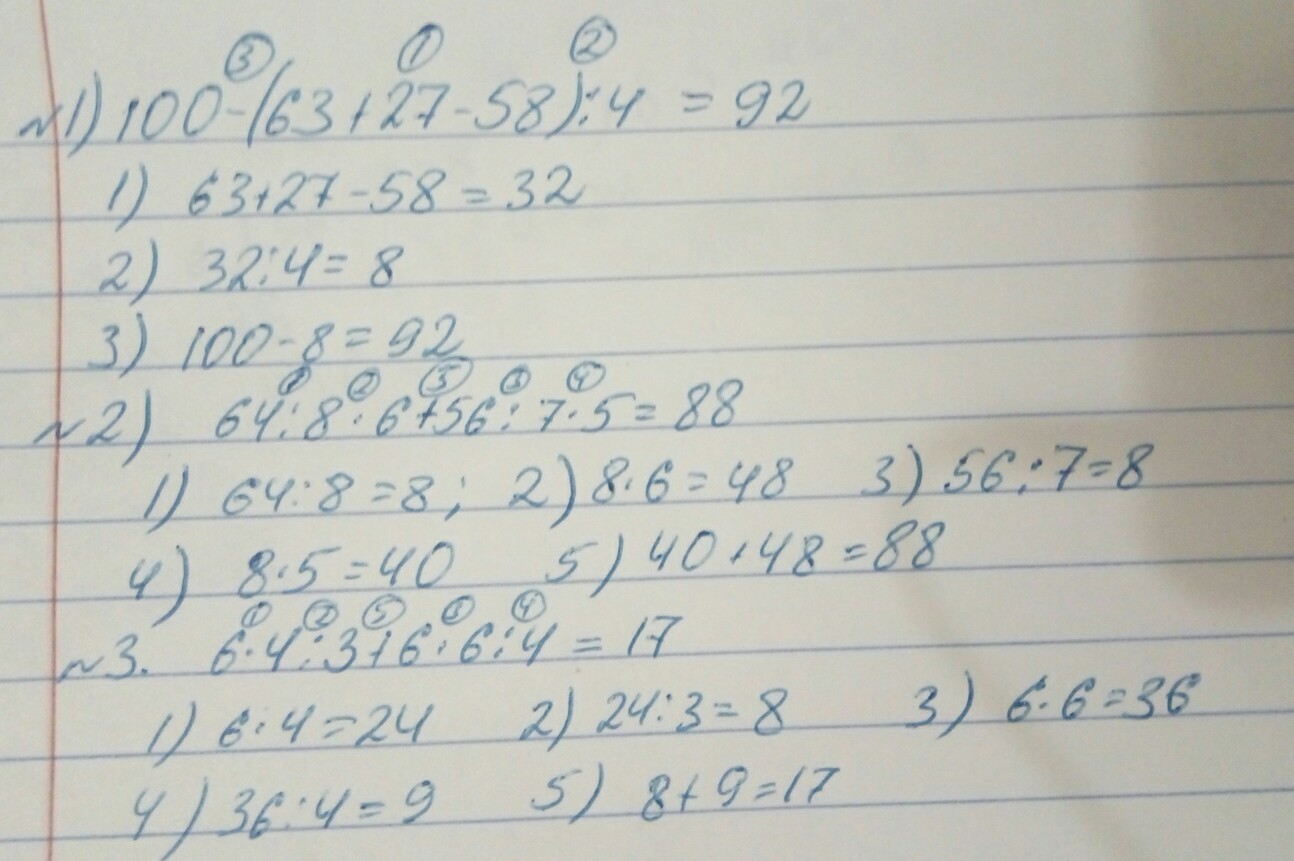 ③ ① ②
№1) 100-(63+27-58):4 = 92
1) 63+27-58=32
2) 32:4= 8
3) 100-8=92
① ② ⑤ ③ ④
№2) 64:8·6+56:7·5=88
1) 64:8=8; 2) 8·6=48 3) 56:7=8
4) 8·5=40 5) 40+48=88
① ② ⑤ ③ ④
№3. 6·4:3+6·6:4=17
1) 6·4=24 2) 24:3=8 3) 6·6=36
4) 36:4=9 5) 8+9=17